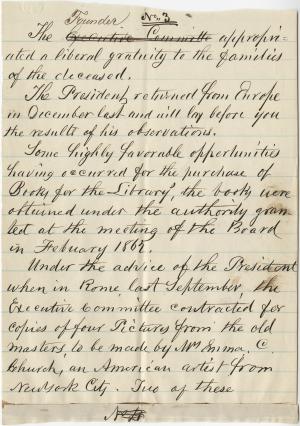 Founder No. 3
The Executive Committe appropri-
ated a liberal gratuity to the families
of the deceased.
The President, returned from Europe
in December last and will lay before you
the results of his observations.
Some highly favorable opportunities
having occurred for the purchase of
Books for the Library, the books were
obtained under the authority gran-
ted at the meeting of the Board
in Febuary 1865.
Under the advice of the President
when in Rome last September, the
Executive Committee contracted for
copies of four Pictures from the old
masters, to be made by Ms Emma. C.
Church, an American artist from
New York City. Two of these